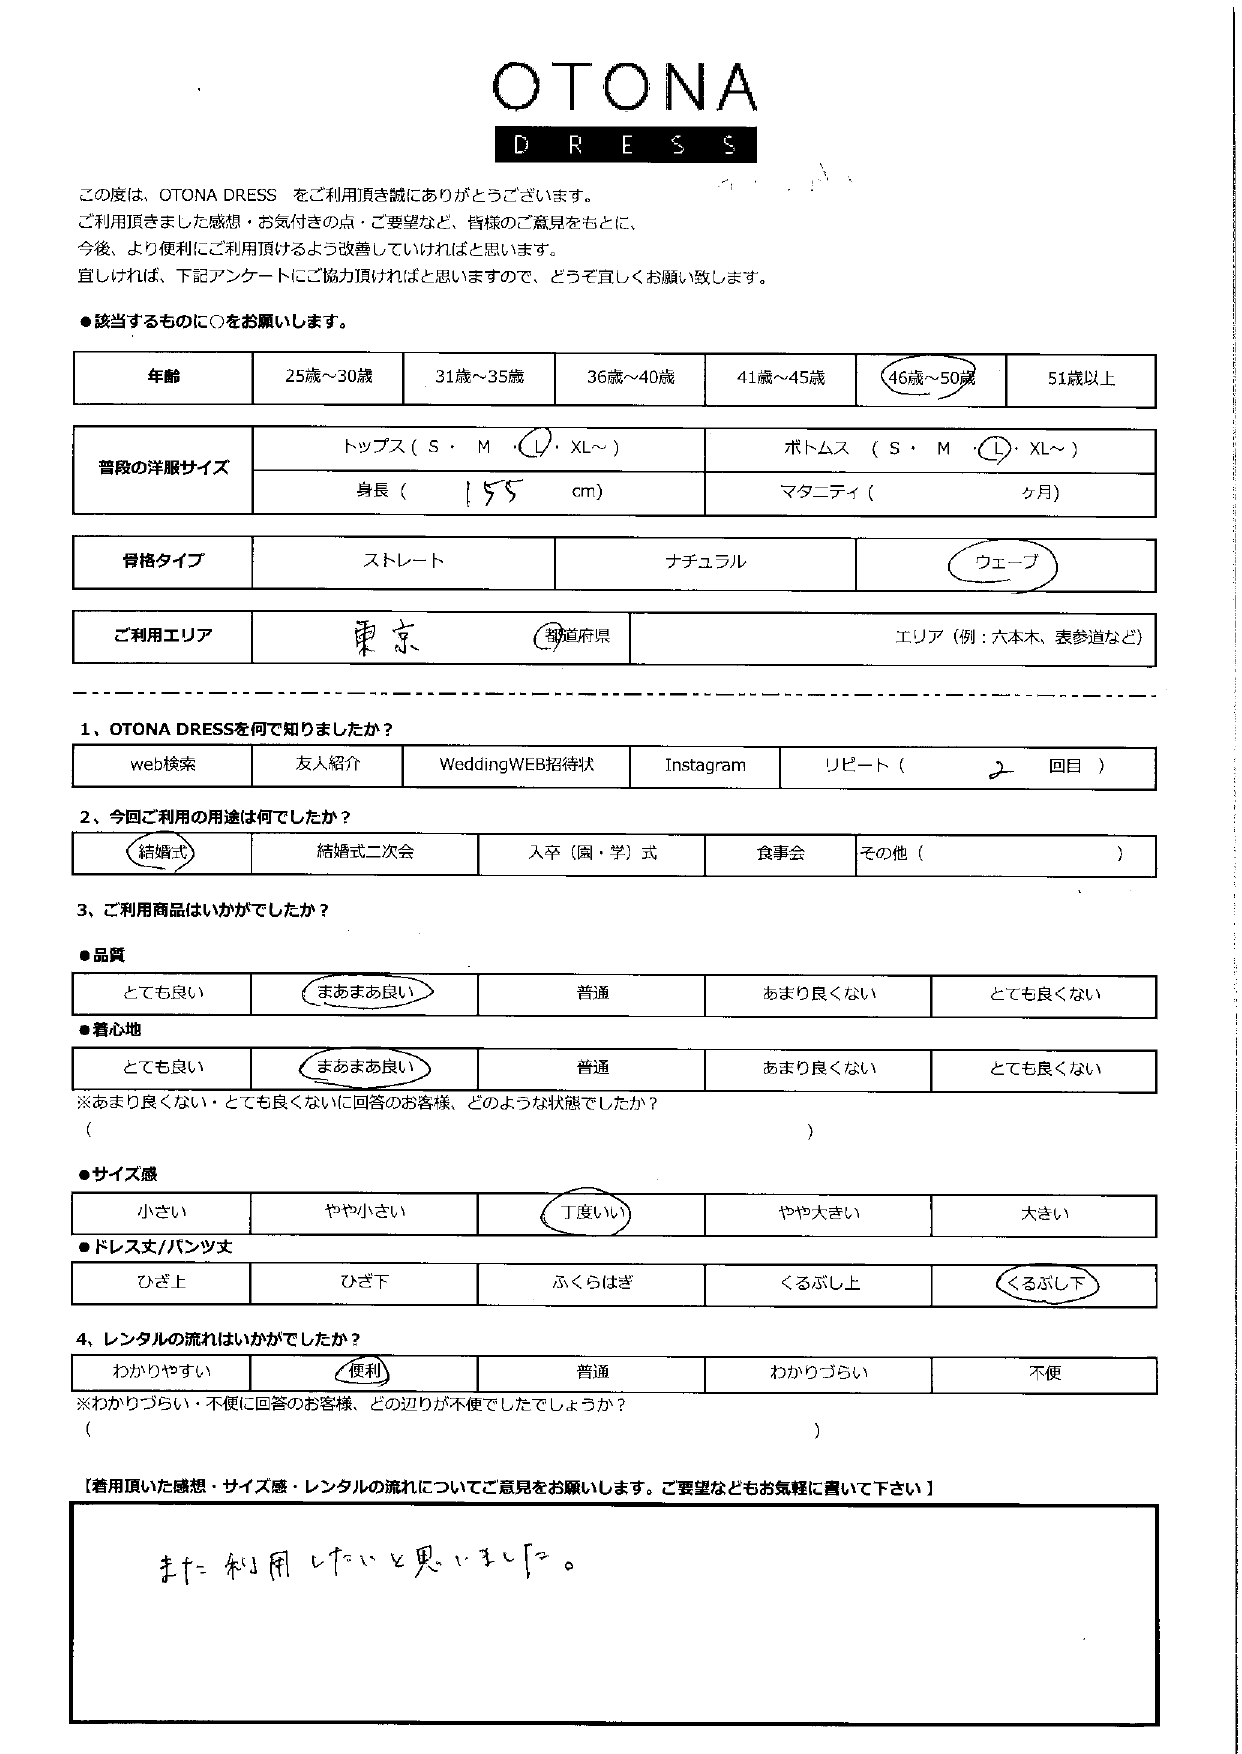 OTONA
DRESS
この度は、OTONA DRESS　をご利用頂き誠にありがとうございます。
ご利用頂きました感想・お気付きの点・ご要望など、皆様のご意見をもとに、
今後、より便利にご利用頂けるよう改善していければと思います。
宜しければ、下記アンケートにご協力頂ければと思いますので、どうぞ宜しくお願い致します。
●該当するものに○をお願いします。
年齢 25歳～30歳 31歳～35歳 36歳～40歳 41歳～45歳 46歳～50歳 51歳以上
普段の洋服サイズ トップス ( S ・ M ・ L ・ XL～ ) ボトムス ( S ・ M ・ L ・ XL～ )
身長 ( 155 cm) マタニティ ( ヶ月)
骨格タイプ ストレート ナチュラル ウェーブ
ご利用エリア 東京 都道府県 エリア（例：六本木、表参道など）
1、OTONA DRESSを何で知りましたか？
web検索 友人紹介 WeddingWEB招待状 Instagram リピート ( 2 回目 )
2、今回ご利用の用途は何でしたか？
結婚式 結婚式二次会 入卒（園・学）式 食事会 その他 ( )
3、ご利用商品はいかがでしたか？
●品質
とても良い まあまあ良い 普通 あまり良くない とても良くない
●着心地
とても良い まあまあ良い 普通 あまり良くない とても良くない
※あまり良くない・とても良くないに回答のお客様、どのような状態でしたか？
( )
●サイズ感
小さい やや小さい 丁度いい やや大きい 大きい
●ドレス丈/パンツ丈
ひざ上 ひざ下 ふくらはぎ くるぶし上 くるぶし下
4、レンタルの流れはいかがでしたか？
わかりやすい 便利 普通 わかりづらい 不便
※わかりづらい・不便に回答のお客様、どの辺りが不便でしたでしょうか？
( )
【着用頂いた感想・サイズ感・レンタルの流れについてご意見をお願いします。ご要望などもお気軽に書いて下さい】
また利用したいと思いました。